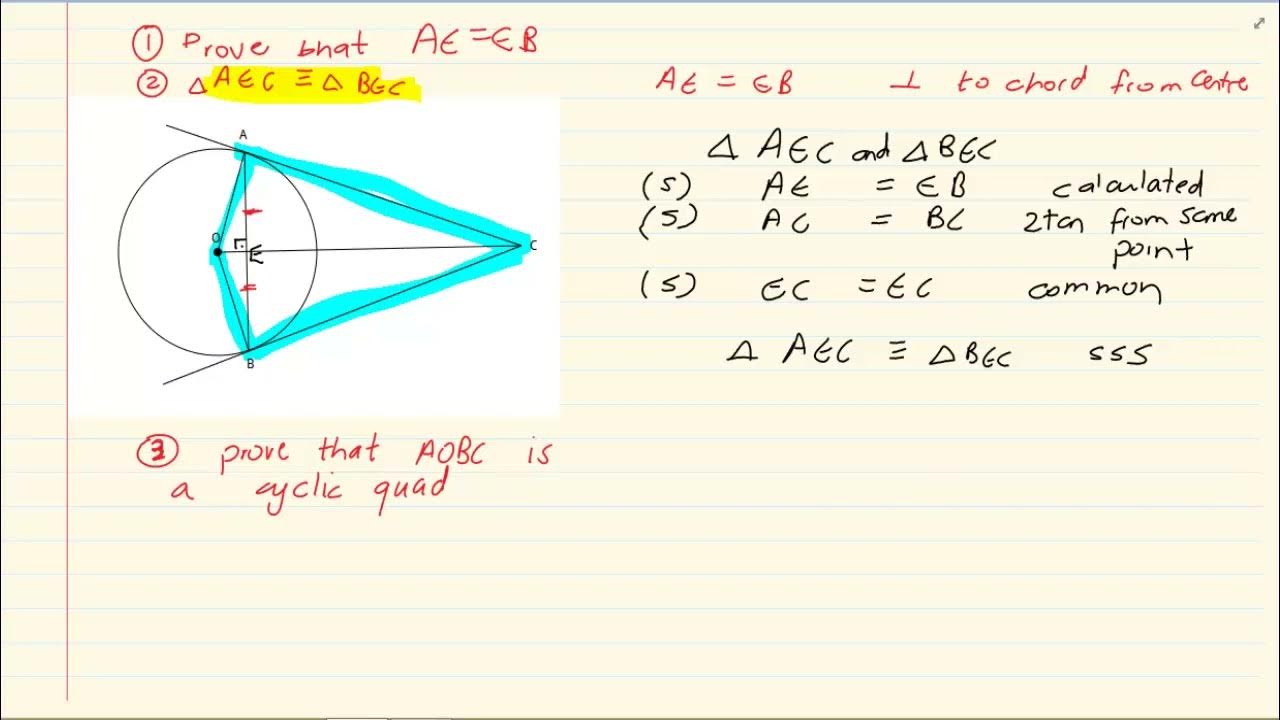 ① Prove that AE = EB
② △ AEC ≡ △ BEC
A
O
E
C
B
③ prove that AOBC is
a cyclic quad
AE = EB ⊥ to chord from centre
△ AEC and △ BEC
(S) AE = EB calculated
(S) AC = BC 2tan from same
point
(S) EC = EC common
△ AEC ≡ △ BEC SSS